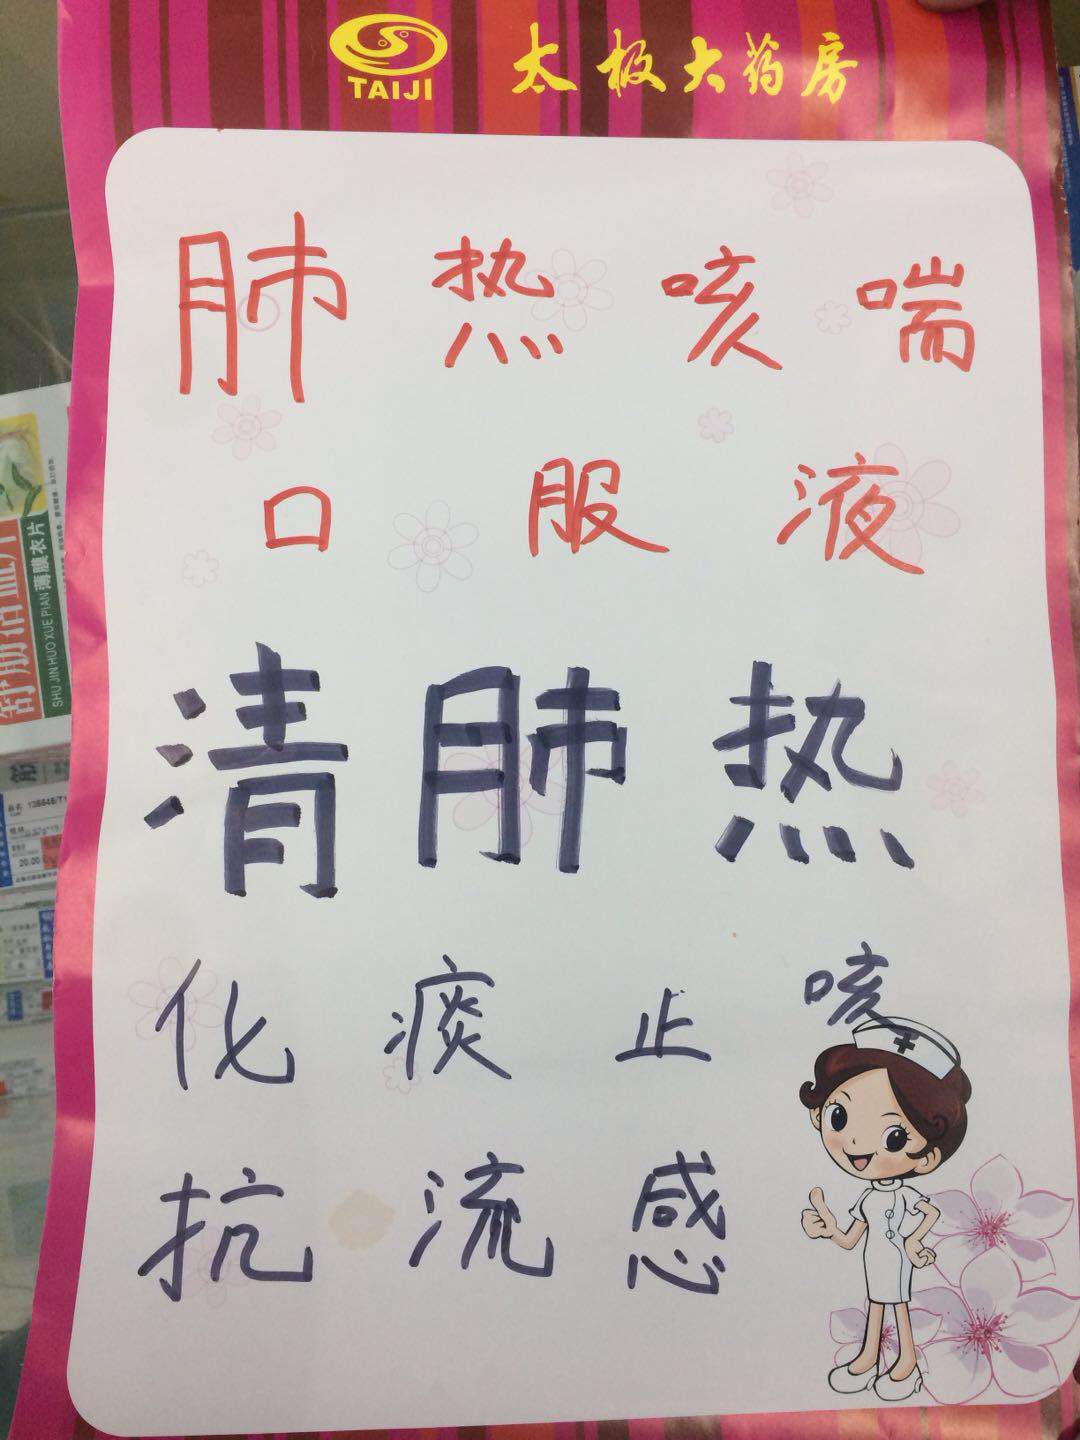 TAIJI 太极大药房
肺热咳喘
口服液
清肺热
化痰止咳
抗流感
舒筋活血片
薄膜衣片
SHU JIN HUO XUE PIAN
20.00